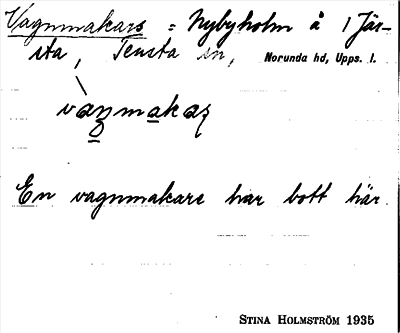 Vagnmakars = Nybyholm å 1 Jär-
sta, Tensta sn, Norunda hd, Upps. l.
En vagnmakare har bott här.
STINA HOLMSTRÖM 1935